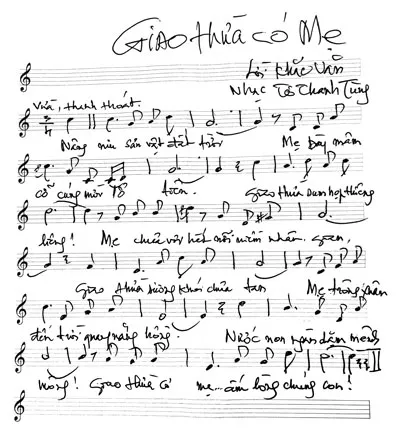 Giao thừa có Mẹ
Lời: Khắc Văn
Nhạc: Tô Thanh Tùng
Vừa, thanh thoát.
Nâng niu sản vật đất trời Mẹ bày mâm
cỗ cúng mời Tổ tiên. Giao thừa sum họp thiêng
liêng! Mẹ chia với hết nỗi niềm nhân gian,
Giao thừa sương khói chửa tan Mẹ trông xuân
đến tuổi quay nắng hồng. Nước non ngàn dặm mênh
mông! Giao thừa có mẹ... ấm lòng chúng con!